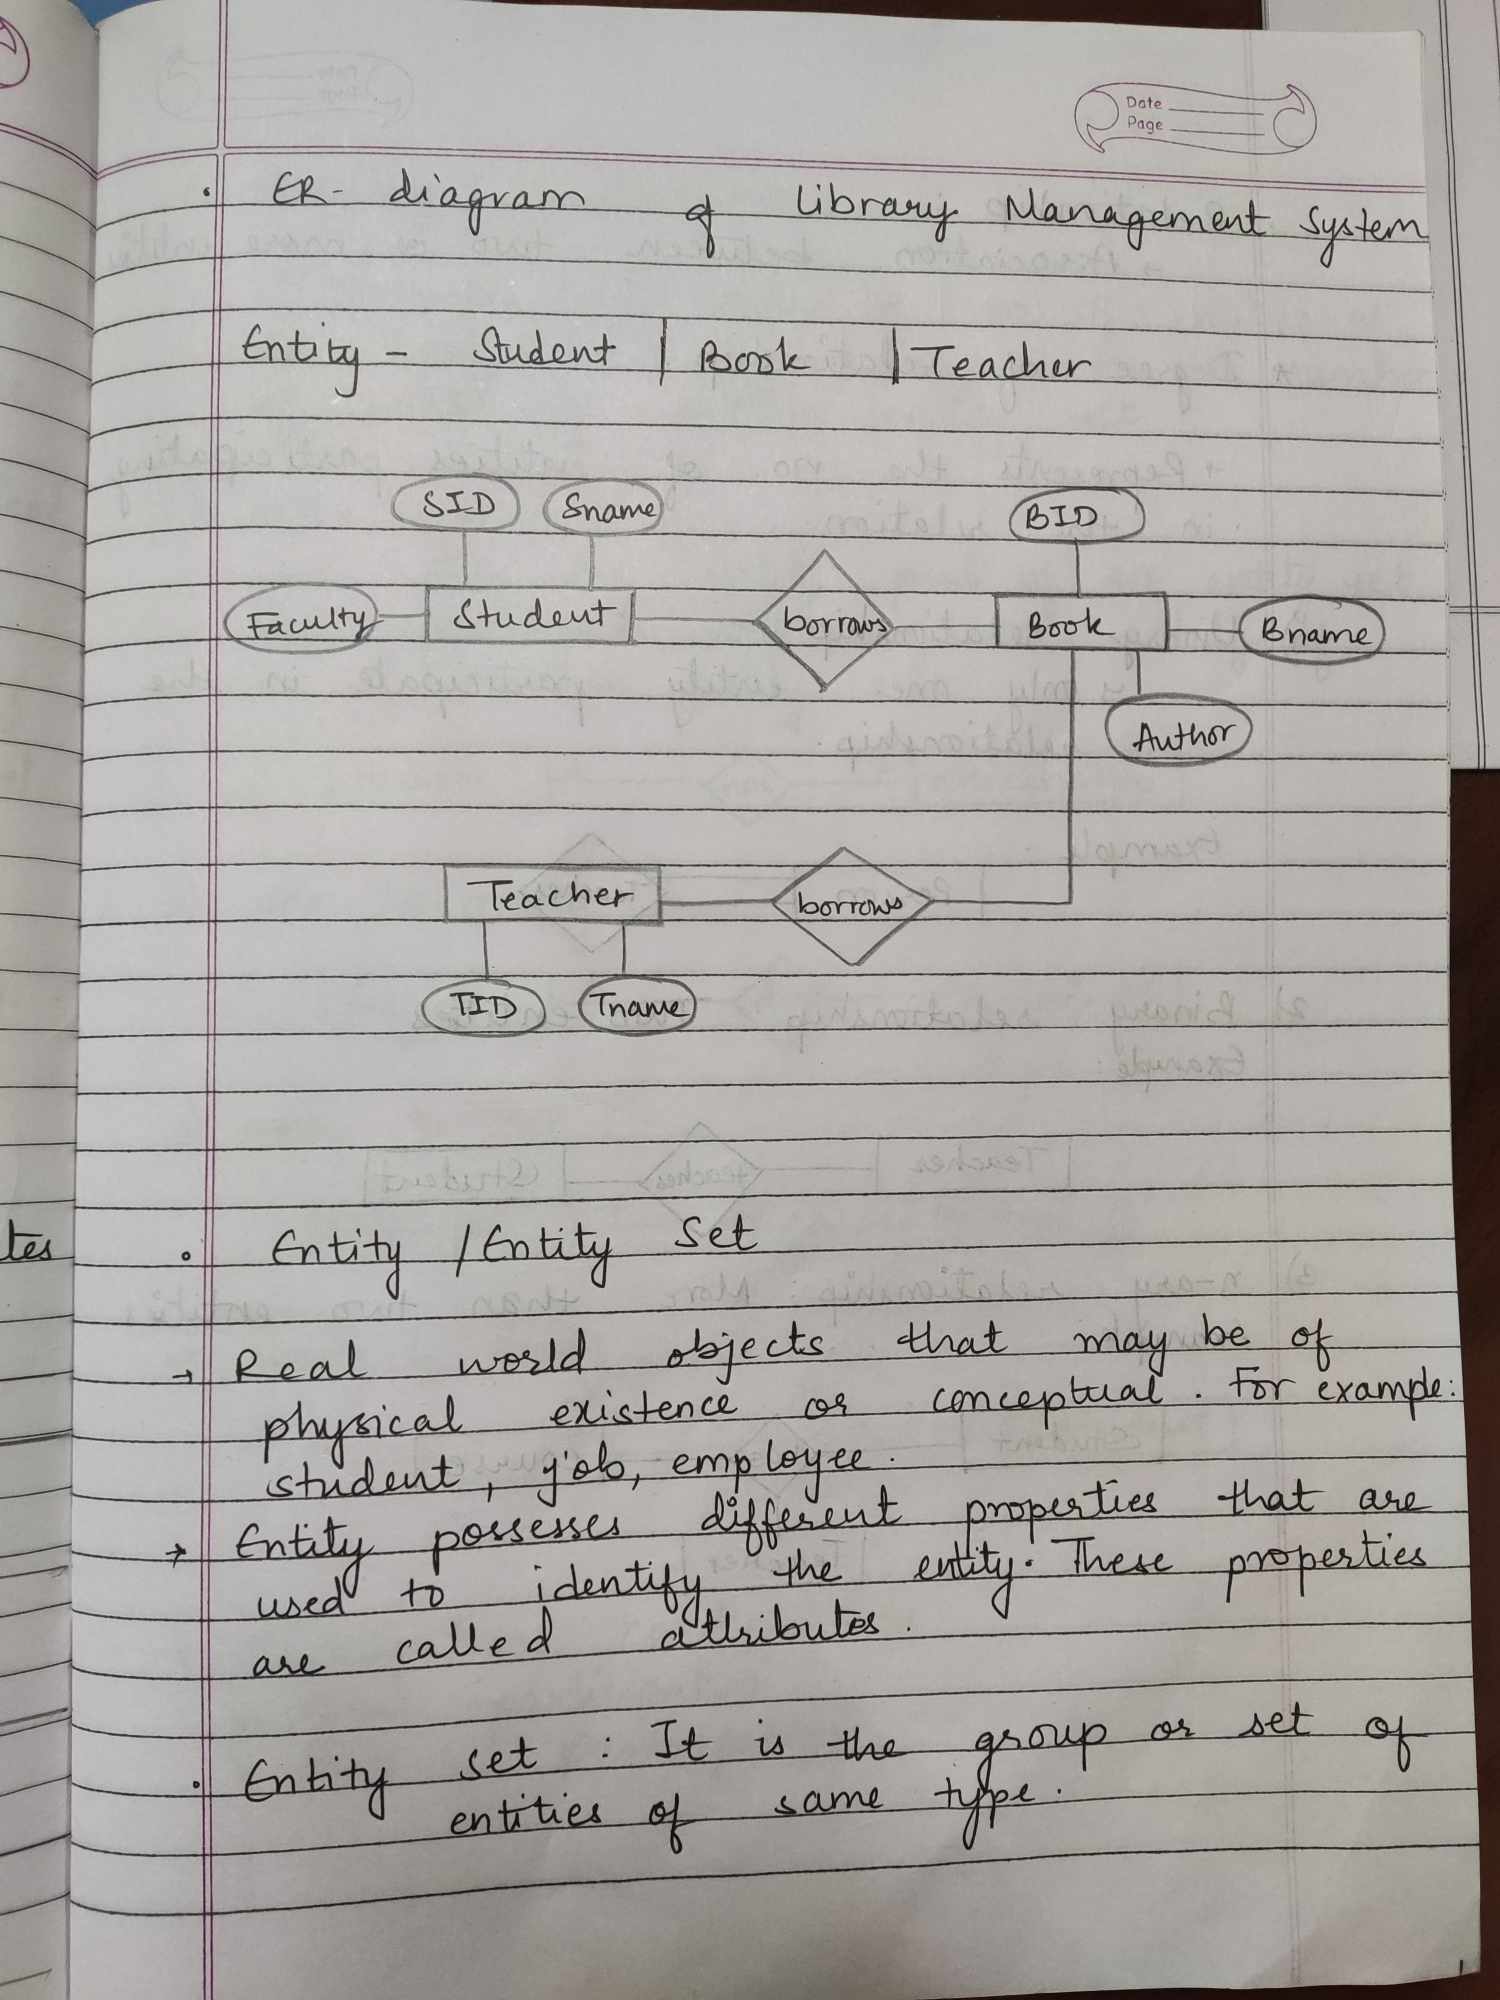 Date
Page
• ER- diagram of Library Management System
Entity - Student | Book | Teacher
SID Sname BID
Faculty Student borrows Book Bname
Author
Teacher borrows
TID Tname
tes
• Entity / Entity Set
→ Real world objects that may be of
physical existence or conceptual. For example:
student, job, employee.
→ Entity possesses different properties that are
used to identify the entity. These properties
are called attributes.
• Entity set : It is the group or set of
entities of same type.